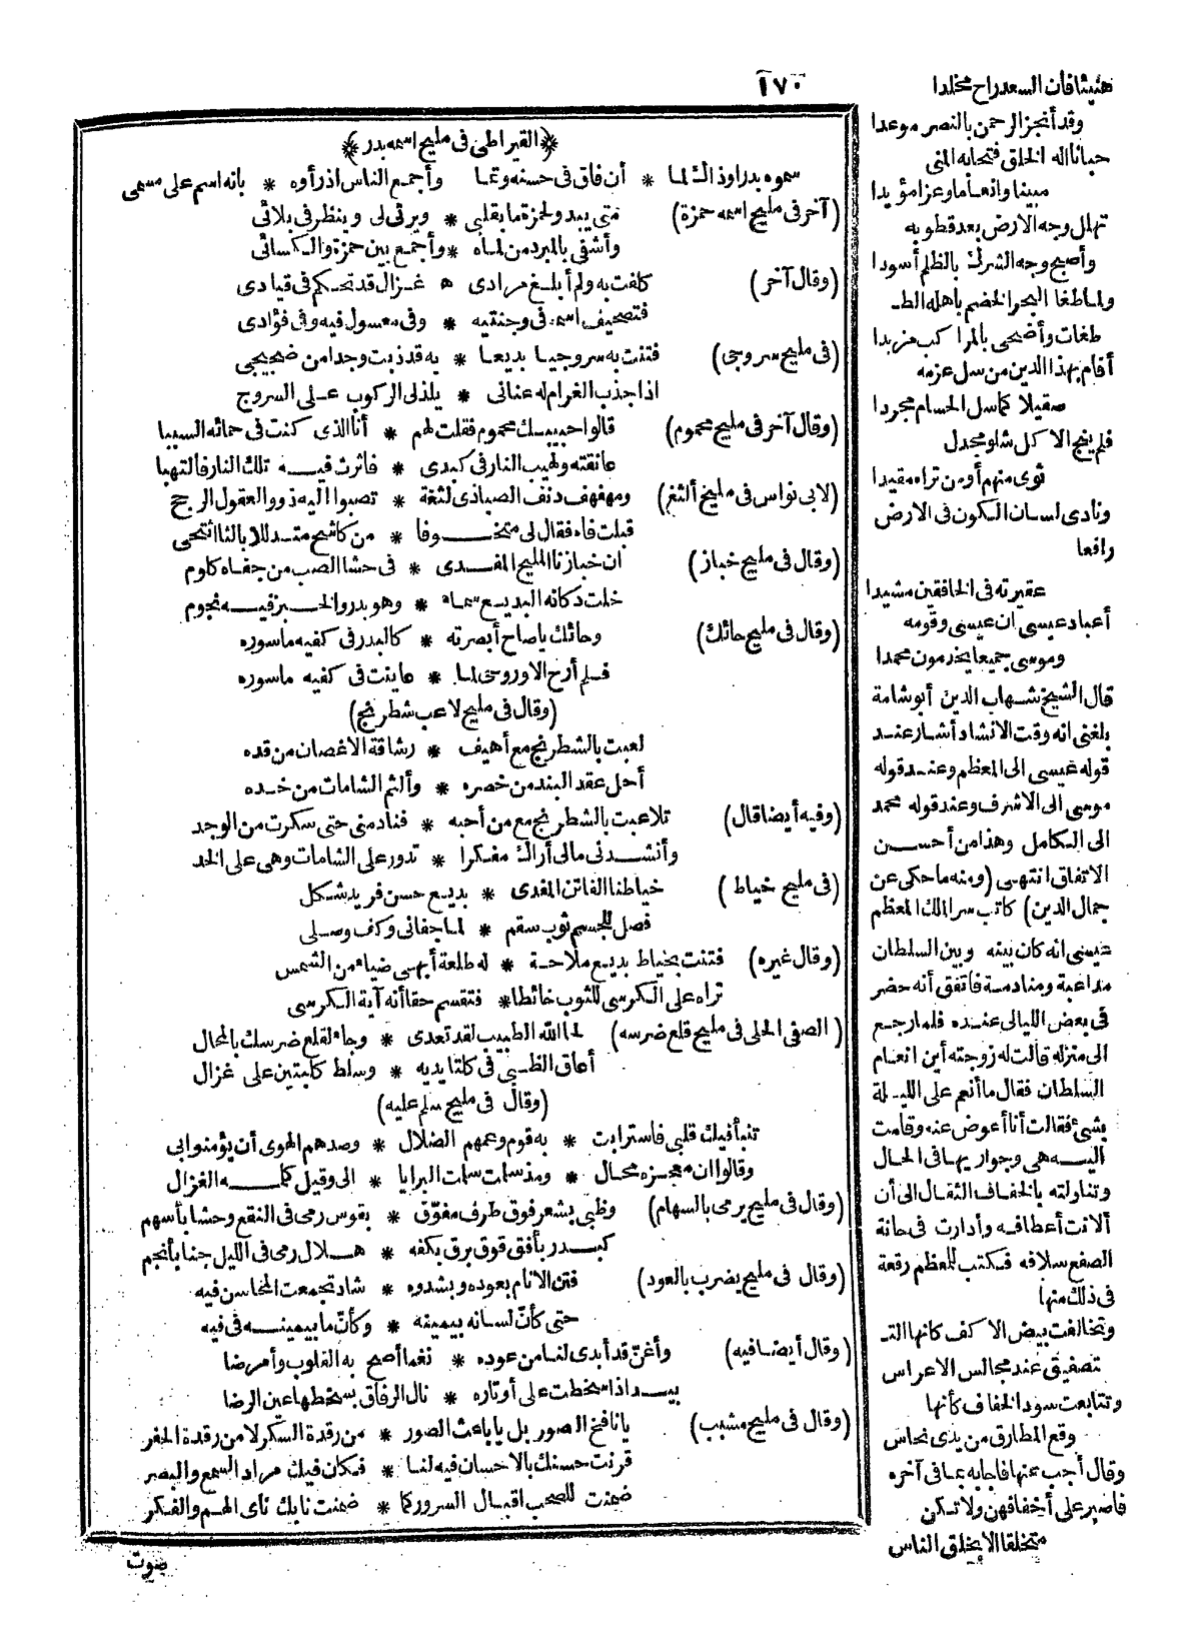 ١٧٠
﴿القيراطى فى مليح اسمه بدر﴾
سموه بدرا وذاك لما * أن فاق فى حسنه وتما وأجمع الناس اذ رأوه * بانه اسم على مسمى
(آخر فى مليح اسمه حمزة) متى يبدو لحمزة ما بقلبى * ويرثى لى وينظر فى بلائى
وأشفى بالمبرد من لماه * وأجمع بين حمزة والكسائى
(وقال آخر) كلفت به ولم أبلغ مرادى * غزال قد تحكم فى قيادى
فتصحيف اسمه فى وجنتيه * وفى معسول فيه وفى فؤادى
(فى مليح سروجى) فتنت به سروجيا بديعا * به قد ذبت وجدا من ضجيجى
اذا جذب الغرام له عنانى * يلذ لى الركوب على السروج
(وقال آخر فى مليح محموم) قالوا حبيبك محموم فقلت لهم * أنا الذى كنت فى حمائه السببا
عانقته ولهيب النار فى كبدى * فاثرت فيه تلك النار فالتهبا
(لابى نواس فى مليح ألثغ) ومهفهف دنف الصباذى لثغة * تصبوا اليه ذوو العقول الرجح
قبلت فاه فقال لى متخوفا * من كاشح متدللا بالثا انتحى
(وقال فى مليح خباز) ان خبازنا المليح المفدى * فى حشا الصب من جفاه كلوم
خلت دكانه البديع سماء * وهو بدر والخبز فيه نجوم
(وقال فى مليح حائك) وحائك ياصاح أبصرته * كالبدر فى كفيه ماسوره
فلم أرح الا وروحى لما * عاينت فى كفيه ماسوره
(وقال فى مليح لاعب شطرنج)
لعبت بالشطرنج مع أهيف * رشاقة الاغصان من قده
أحل عقد البند من خصره * وألثم الشامات من خده
(وفيه أيضا قال) تلاعبت بالشطرنج مع من أحبه * فنادمنى حتى سكرت من الوجد
وأنشدنى مالى أراك مفكرا * تدور على الشامات وهى على الخد
(فى مليح خياط) خياطنا الفاتن المفدى * بديع حسن فريد شكل
فصل للجسم ثوب سقم * لما جفانى وكف وصلى
(وقال غيره) فتنت بخياط بديع ملاحة * له طلعة أبهى ضياء من الشمس
تراه على الكرسى للثوب خائطا * فتقسم حقا أنه آية الكرسى
(الصفى الحلى فى مليح قلع ضرسه) لحا الله الطبيب لقد تعدى * وجاء لقلع ضرسك بالمحال
أعاق الظبى فى كلتا يديه * وسلط كلبتين على غزال
(وقال فى مليح سلم عليه)
تنبأ فيك قلبى فاسترابت * به قوم وعمهم الضلال * وصدهم الهوى أن يؤمنوا بى
وقالوا ان معجزه محال * ومذ سلمت سلمت البرايا * الى وقيل كلمه الغزال
(وقال فى مليح يرمى بالسهام) وظبى بشعر فوق طرف مفوّق * بقوس رمى فى النقع وحشا بأسهم
كبدر بأفق قوق برق بكفه * هلال رمى فى الليل جنا بأنجم
(وقال فى مليح يضرب بالعود) فتن الانام بعوده وبشدوه * شاد تجمعت المحاسن فيه
حتى كأنّ لسانه بيمينه * وكأنّ ما بيمينه فى فيه
(وقال أيضا فيه) وأغنّ قد أبدى لنا من عوده * نغما أصح به القلوب وأمرضا
بيد اذا سخطت على أوتاره * نال الرفاق بسخطها عين الرضا
(وقال فى مليح مشبب) يا نافخ الصور بل يا باعث الصور * من رقدة السكر لا من رقدة الحفر
قرنت حسنك بالاحسان فيه لنا * فكان فيك مراد السمع والبصر
ضمنت للصحب اقبال السرور كما * ضمنت نايك نأى الهم والفكر
صوت
هنيئا فان السعد راح مخلدا
وقد أنجز الرحمن بالنصر موعدا
حبانا اله الخلق فتحا به المنى
مبينا وانعاما وعزا مؤيدا
تهلل وجه الارض بعد قطوبه
وأصبح وجه الشرك بالظلم أسودا
ولما طغا البحر الخضم باهله الط
طغات وأضحى بالمراكب مزبدا
أقام بهذا الدين من سل عزمه
صقيلا كما سل الحسام مجردا
فلم ينج الا كل شلو مجدل
ثوى منهم أو من تراه مقيدا
ونادى لسان الكون فى الارض
رافعا
عقيرته فى الخافقين مشيدا
أعباد عيسى ان عيسى وقومه
وموسى جميعا يخدمون محمدا
قال الشيخ شهاب الدين أبو شامة
بلغنى انه وقت الانشاد أشار عند
قوله عيسى الى المعظم وعند قوله
موسى الى الاشرف وعند قوله محمد
الى الكامل وهذا من أحسن
الاتفاق انتهى (ومنه ما حكى عن
جمال الدين) كاتب سر الملك المعظم
عيسى انه كان بينه وبين السلطان
مداعبة ومنادمة فاتفق أنه حضر
فى بعض الليالى عنده فلما رجع
الى منزله قالت له زوجته أين انعام
السلطان فقال ما أنعم على الليلة
بشئ فقالت أنا أعوض عنه وقامت
اليه هى وجوار يهافى الحال
وتناولته بالخفاف الثقال الى أن
ألانت أعطافه وأدارت فى حانة
الصفع سلافه فكتب للمعظم رقعة
فى ذلك منها
وتخالفت بيض الاكف كانها الت
تصفيق عند مجالس الاعراس
وتتابعت سود الخفاف كأنها
وقع المطارق من يدى نحاس
وقال أجب عنها فاجابه بما فى آخره
فاصبر على أخفافهن ولا تكن
متخلقا الا بخلق الناس